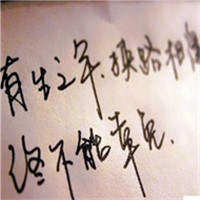 有生之年,狭路相逢
终不能幸免.